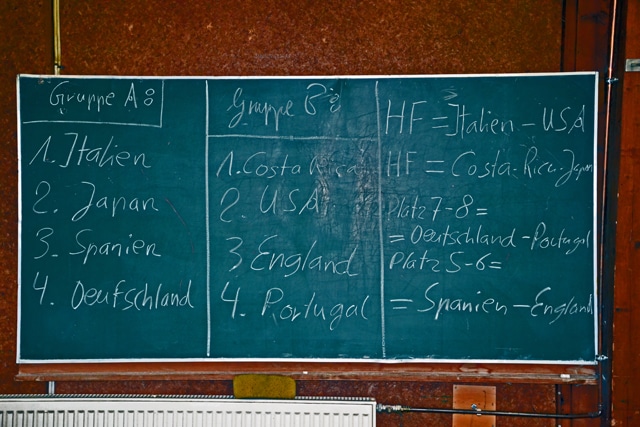 Gruppe A:
1. Italien
2. Japan
3. Spanien
4. Deutschland
Gruppe B:
1. Costa Rica
2. USA
3 England
4. Portugal
HF = Italien - USA
HF = Costa-Rica-Japan
Platz 7-8 =
= Deutschland - Portugal
Platz 5-6 =
= Spanien - England